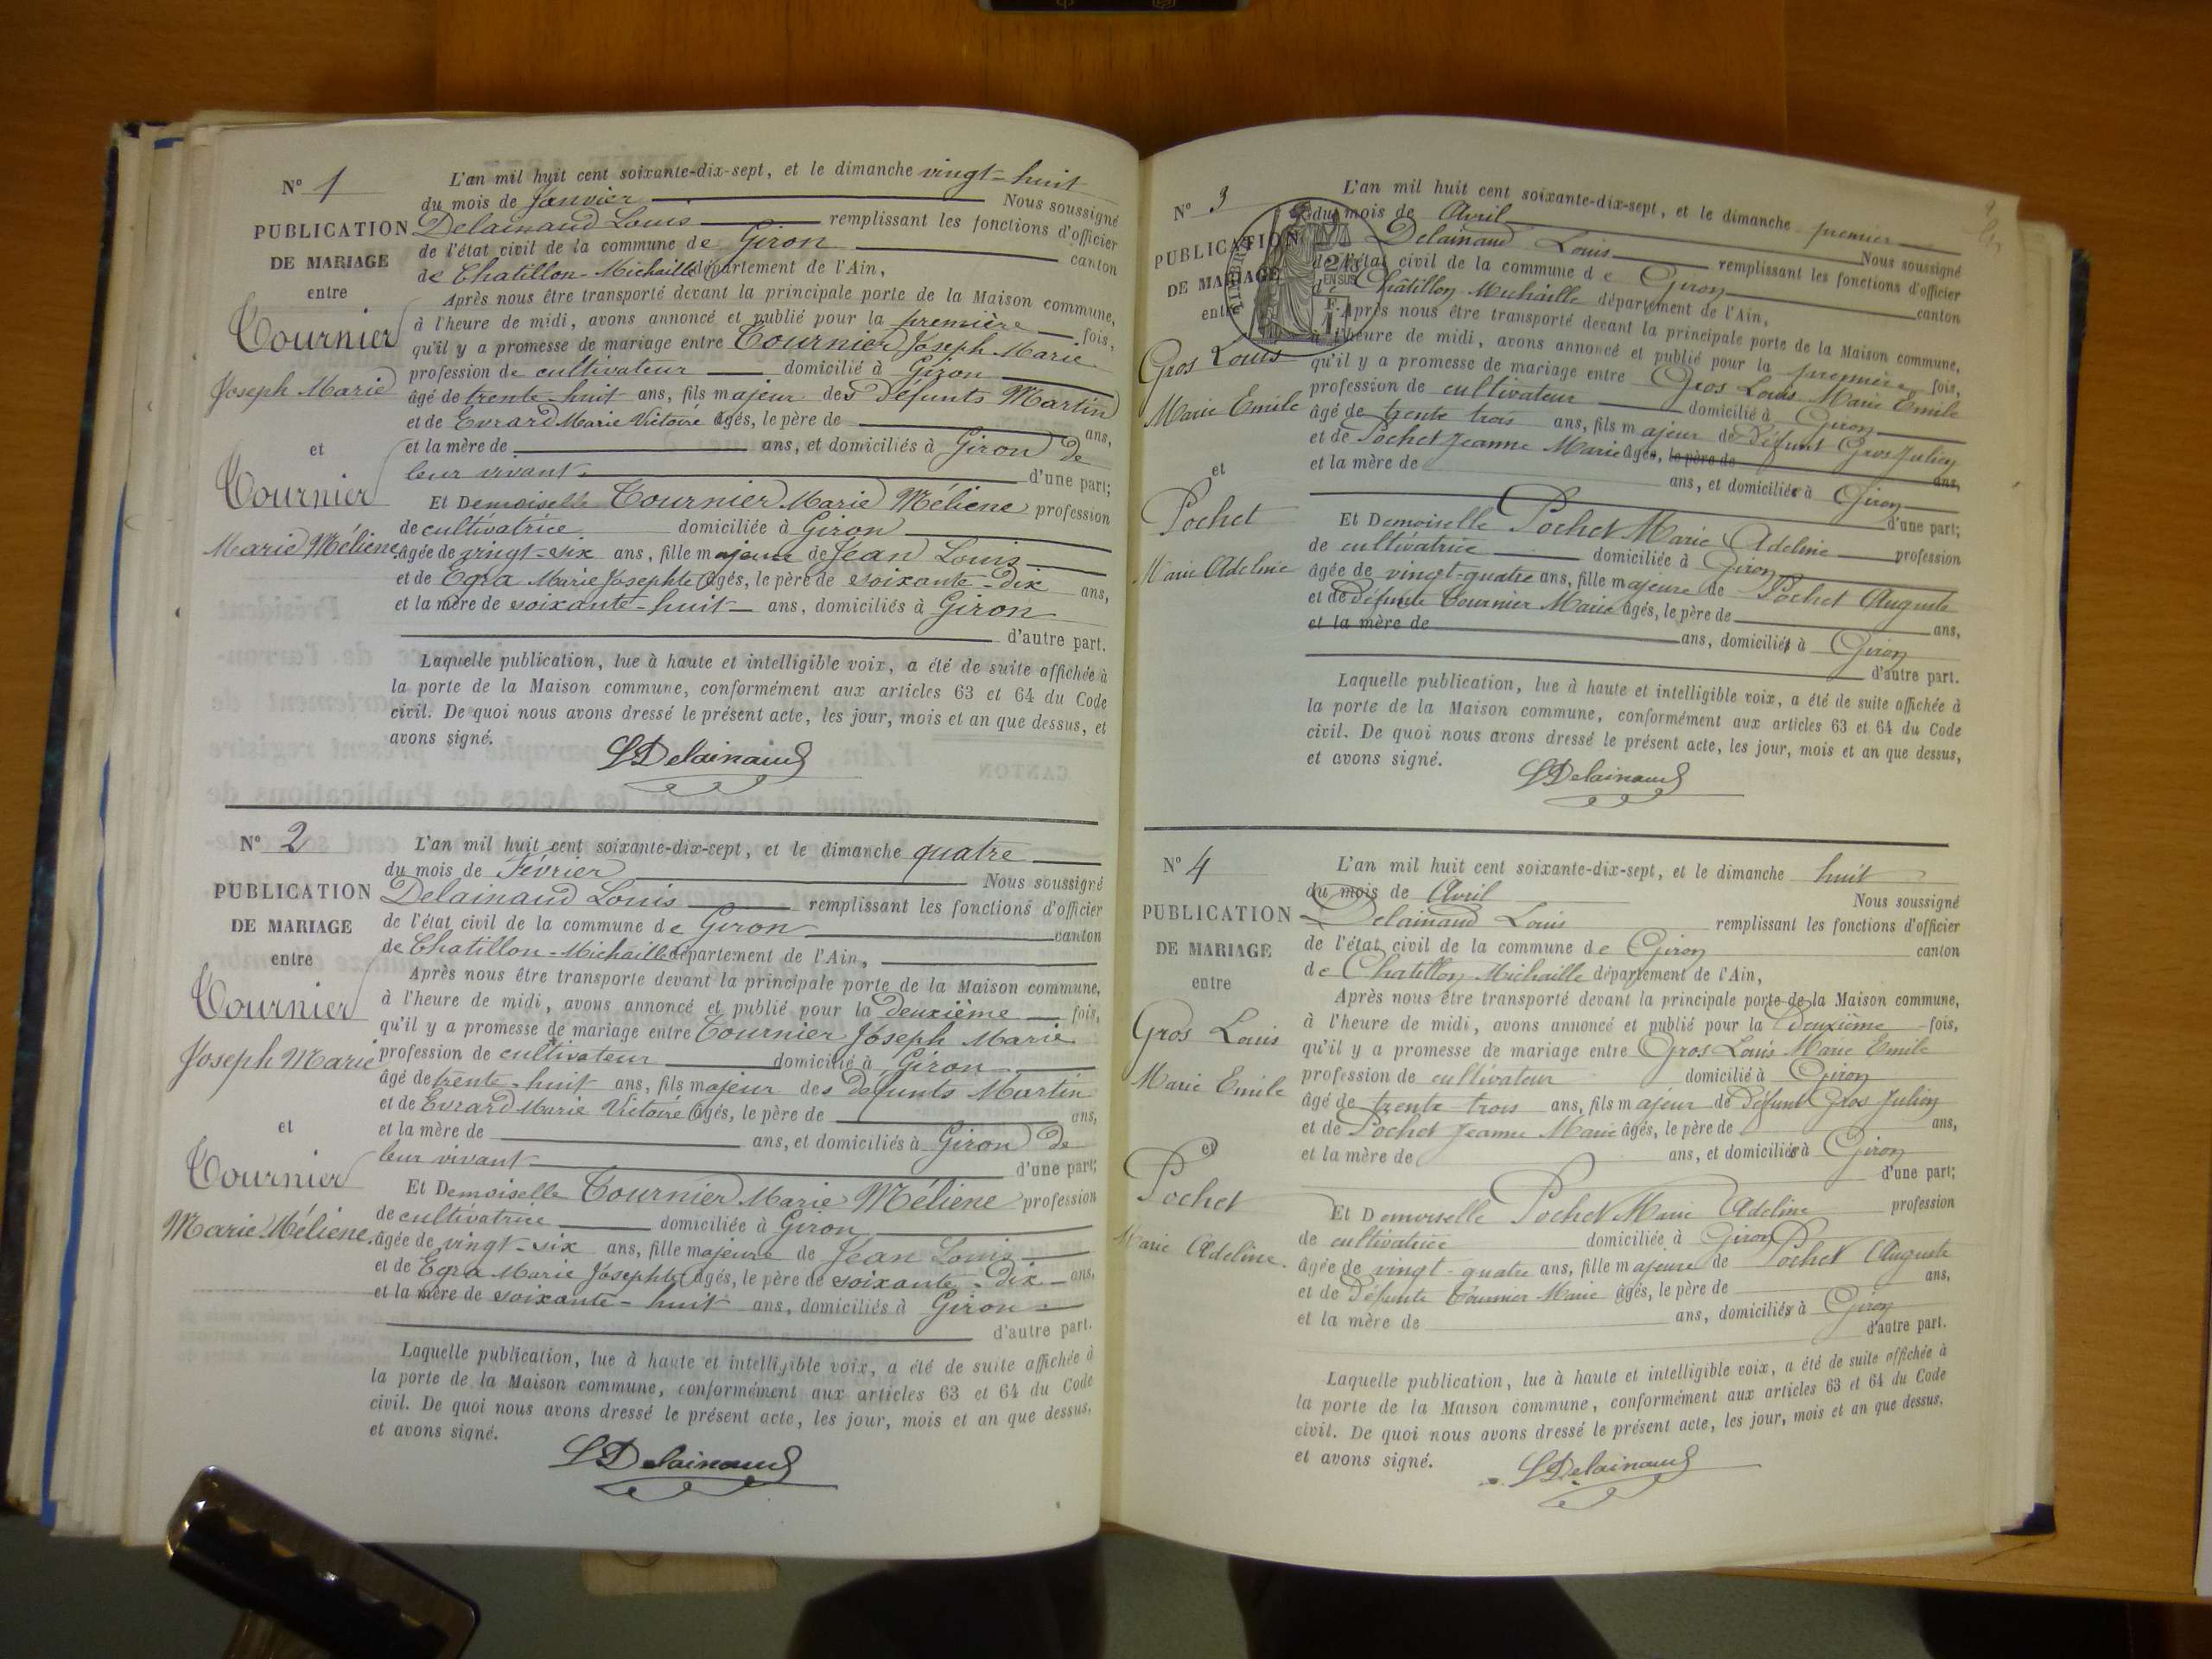 N° 1
PUBLICATION
DE MARIAGE
entre
Tournier
Joseph Marie
et
Tournier
Marie Méliene
L'an mil huit cent soixante-dix-sept, et le dimanche vingt-huit
du mois de Janvier Nous soussigné
Delainaud Louis remplissant les fonctions d'officier
de l'état civil de la commune de Giron canton
de Chatillon-Michaille département de l'Ain,
Après nous être transporté devant la principale porte de la Maison commune,
à l'heure de midi, avons annoncé et publié pour la première fois,
qu'il y a promesse de mariage entre Tournier Joseph Marie
profession de cultivateur domicilié à Giron
âgé de trente-huit ans, fils majeur des défunts Martin
et de Evrard Marie Victoire âgés, le père de ans,
et la mère de ans, et domiciliés à Giron de
leur vivant d'une part;
Et Demoiselle Tournier Marie Méliene profession
de cultivatrice domiciliée à Giron
âgée de vingt-six ans, fille majeure de Jean Louis
et de Egra Marie Josephte âgés, le père de soixante-dix ans,
et la mère de soixante-huit ans, domiciliés à Giron
d'autre part.
Laquelle publication, lue à haute et intelligible voix, a été de suite affichée à
la porte de la Maison commune, conformément aux articles 63 et 64 du Code
civil. De quoi nous avons dressé le présent acte, les jour, mois et an que dessus, et
avons signé.
LDelainaud
N° 2
PUBLICATION
DE MARIAGE
entre
Tournier
Joseph Marie
et
Tournier
Marie Méliene
L'an mil huit cent soixante-dix-sept, et le dimanche quatre
du mois de Février Nous soussigné
Delainaud Louis remplissant les fonctions d'officier
de l'état civil de la commune de Giron canton
de Chatillon-Michaille département de l'Ain,
Après nous être transporte devant la principale porte de la Maison commune,
à l'heure de midi, avons annoncé et publié pour la deuxième fois,
qu'il y a promesse de mariage entre Tournier Joseph Marie
profession de cultivateur domicilié à Giron
âgé de trente-huit ans, fils majeur des défunts Martin
et de Evrard Marie Victoire âgés, le père de ans,
et la mère de ans, et domiciliés à Giron de
leur vivant d'une part;
Et Demoiselle Tournier Marie Méliene profession
de cultivatrice domiciliée à Giron
âgée de vingt-six ans, fille majeure de Jean Louis
et de Egra Marie Josephte âgés, le père de soixante-dix ans,
et la mère de soixante-huit ans, domiciliés à Giron
d'autre part.
Laquelle publication, lue à haute et intelligible voix, a été de suite affichée à
la porte de la Maison commune, conformément aux articles 63 et 64 du Code
civil. De quoi nous avons dressé le présent acte, les jour, mois et an que dessus,
et avons signé.
LDelainaud
N° 3
PUBLICATION
DE MARIAGE
entre
Gros Louis
Marie Emile
et
Pochet
Marie Adeline
L'an mil huit cent soixante-dix-sept, et le dimanche premier
du mois de Avril Nous soussigné
Delainaud Louis remplissant les fonctions d'officier
de l'état civil de la commune de Giron canton
de Chatillon Michaille département de l'Ain,
Après nous être transporté devant la principale porte de la Maison commune,
à l'heure de midi, avons annoncé et publié pour la première fois,
qu'il y a promesse de mariage entre Gros Louis Marie Emile
profession de cultivateur domicilié à Giron
âgé de trente trois ans, fils majeur de défunt Gros Julien
et de Pochet Jeanne Marie âgée, le père de ans,
et la mère de ans, et domiciliés à Giron
d'une part;
Et Demoiselle Pochet Marie Adeline profession
de cultivatrice domiciliée à Giron
âgée de vingt-quatre ans, fille majeure de Pochet Auguste
et de défunte Tournier Marie âgés, le père de ans,
et la mère de ans, domiciliés à Giron
d'autre part.
Laquelle publication, lue à haute et intelligible voix, a été de suite affichée à
la porte de la Maison commune, conformément aux articles 63 et 64 du Code
civil. De quoi nous avons dressé le présent acte, les jour, mois et an que dessus,
et avons signé.
LDelainaud
N° 4
PUBLICATION
DE MARIAGE
entre
Gros Louis
Marie Emile
et
Pochet
Marie Adeline.
L'an mil huit cent soixante-dix-sept, et le dimanche huit
du mois de Avril Nous soussigné
Delainaud Louis remplissant les fonctions d'officier
de l'état civil de la commune de Giron canton
de Chatillon Michaille département de l'Ain,
Après nous être transporté devant la principale porte de la Maison commune,
à l'heure de midi, avons annoncé et publié pour la deuxième fois,
qu'il y a promesse de mariage entre Gros Louis Marie Emile
profession de cultivateur domicilié à Giron
âgé de trente-trois ans, fils majeur de défunt Gros Julien
et de Pochet Jeanne Marie âgés, le père de ans,
et la mère de ans, et domiciliés à Giron
d'une part;
Et Demoiselle Pochet Marie Adeline profession
de cultivatrice domiciliée à Giron
âgée de vingt-quatre ans, fille majeure de Pochet Auguste
et de défunte Tournier Marie âgés, le père de ans,
et la mère de ans, domiciliés à Giron
d'autre part.
Laquelle publication, lue à haute et intelligible voix, a été de suite affichée à
la porte de la Maison commune, conformément aux articles 63 et 64 du Code
civil. De quoi nous avons dressé le présent acte, les jour, mois et an que dessus,
et avons signé.
LDelainaud